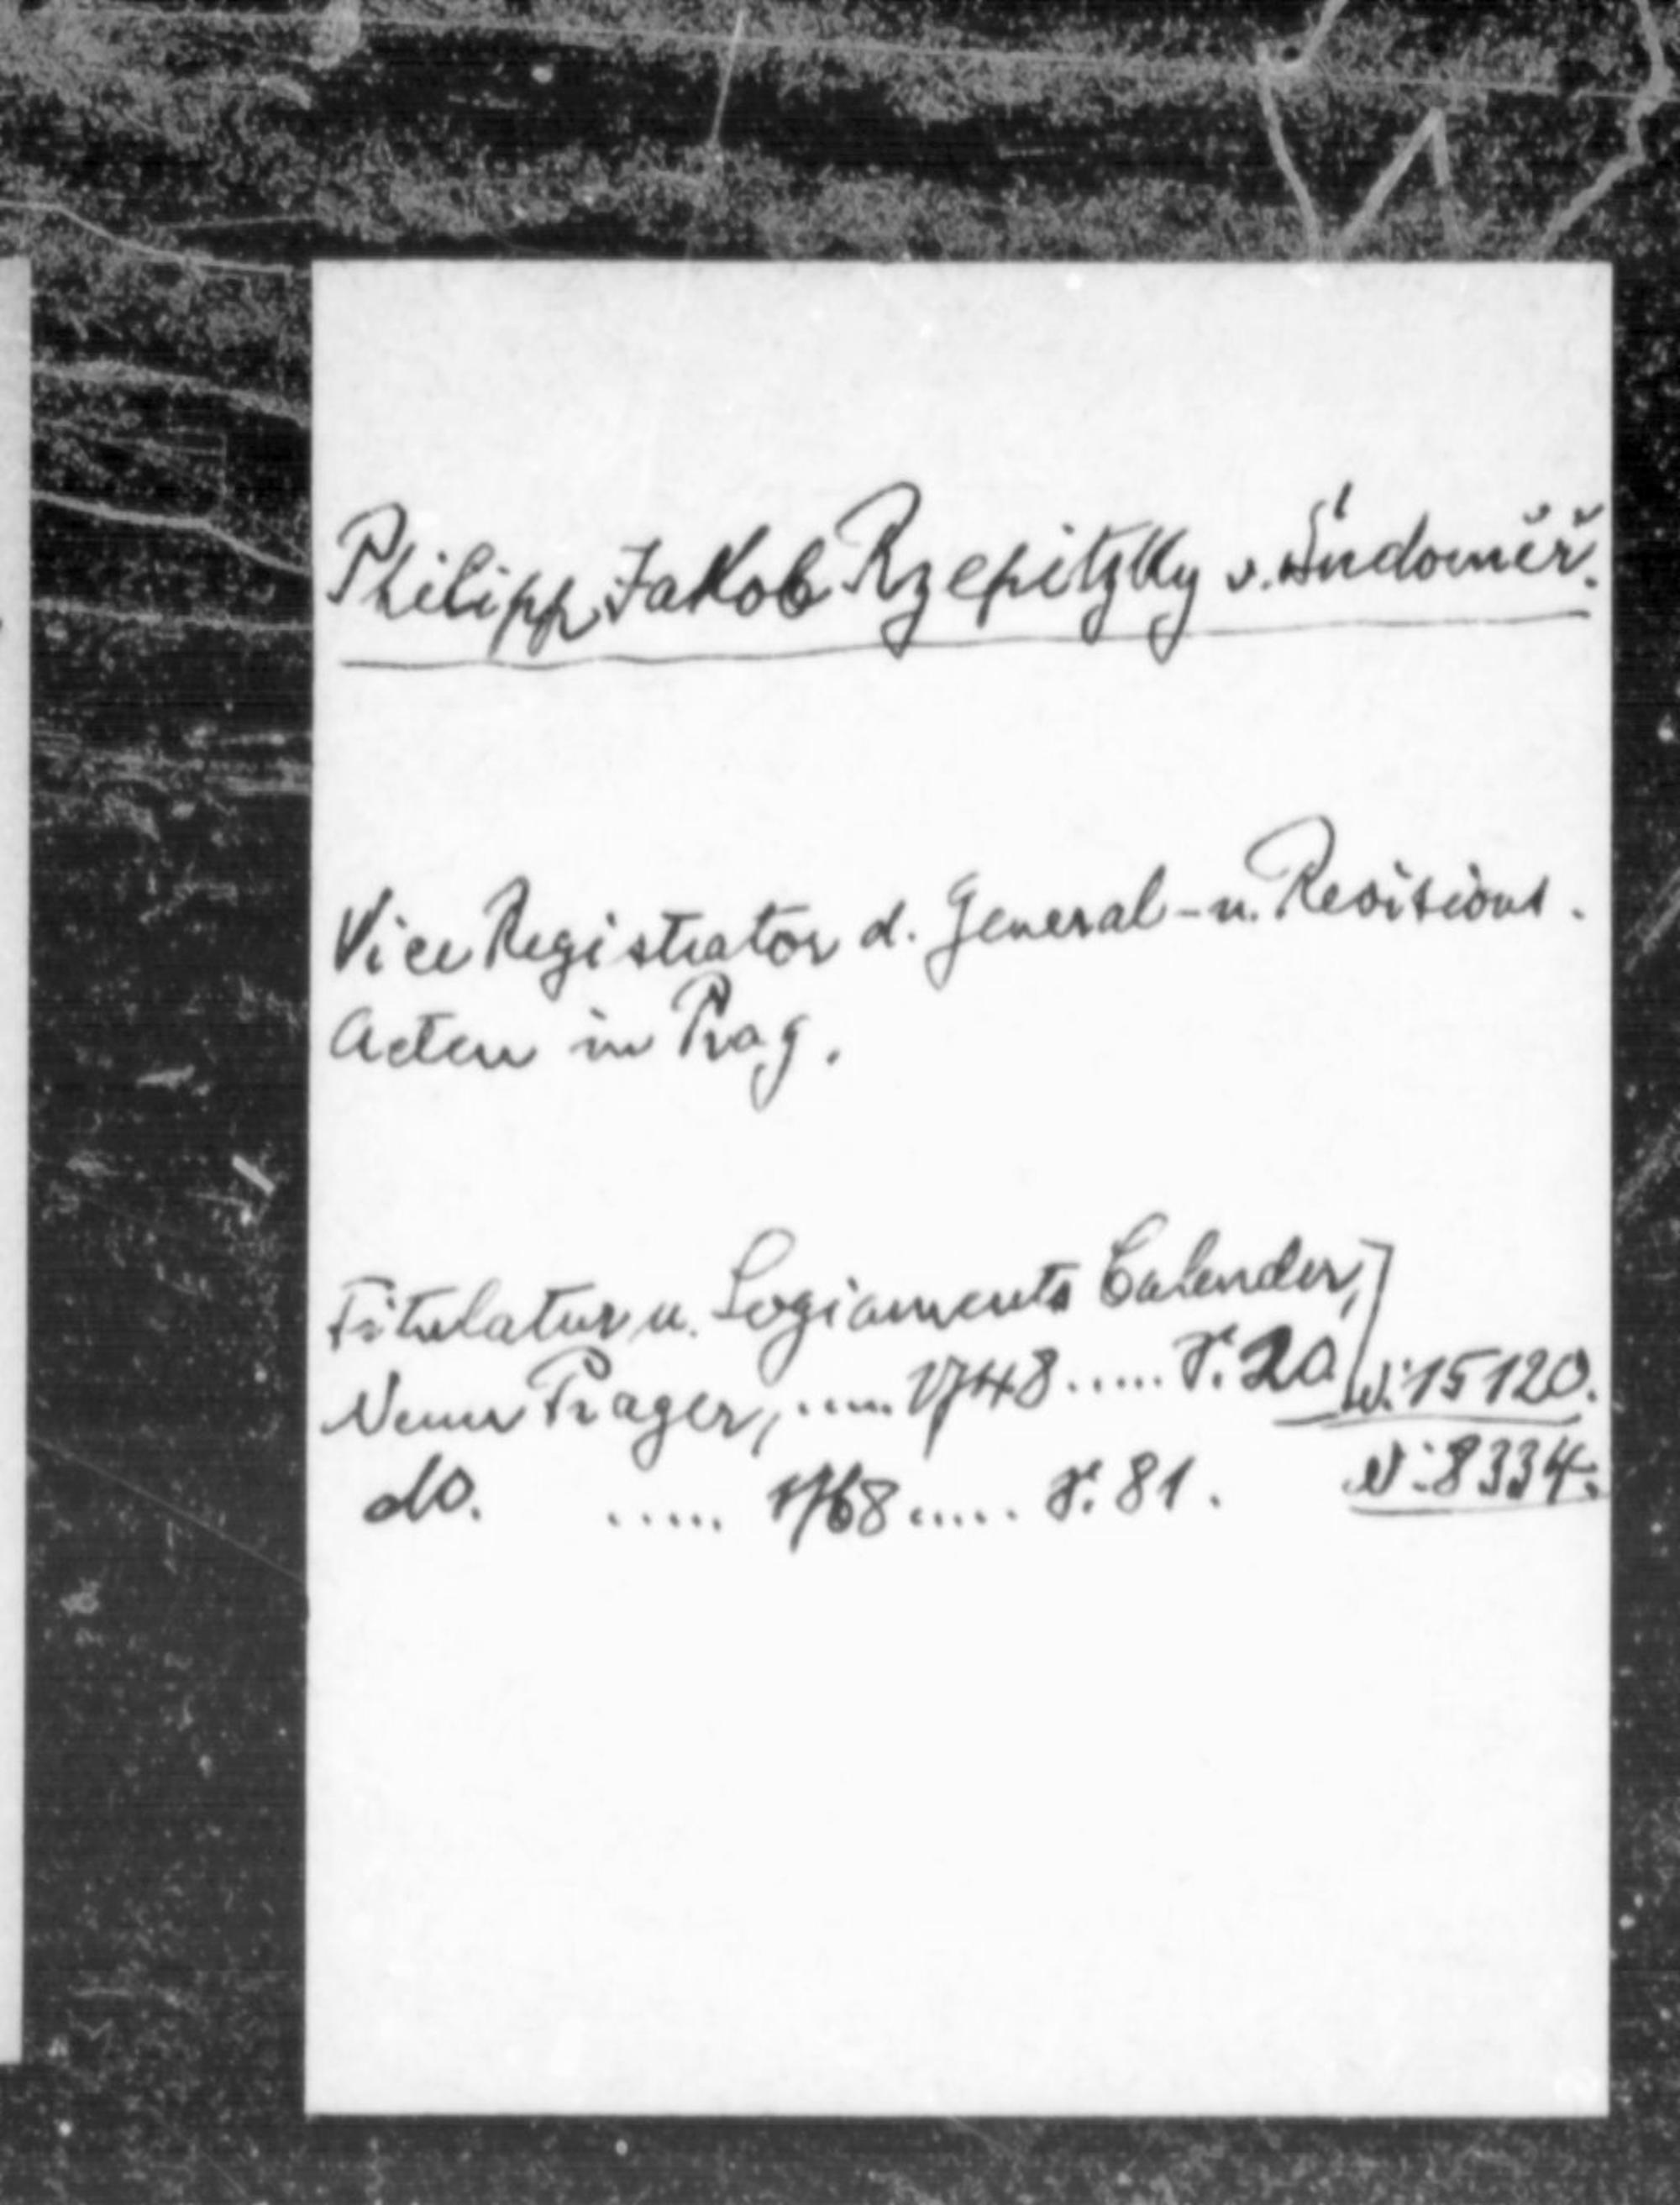 Philipp Jakob Rzepitzky v. Sudoměř.
Vice Registrator d. General-u. Revisions.
Acten in Prag.
Titulatur u. Logiaments Calender,
Neuer Prager, ..... 1748 ..... S. 20. N: 15120.
do. ..... 1768 ..... S. 81. N: 8334.